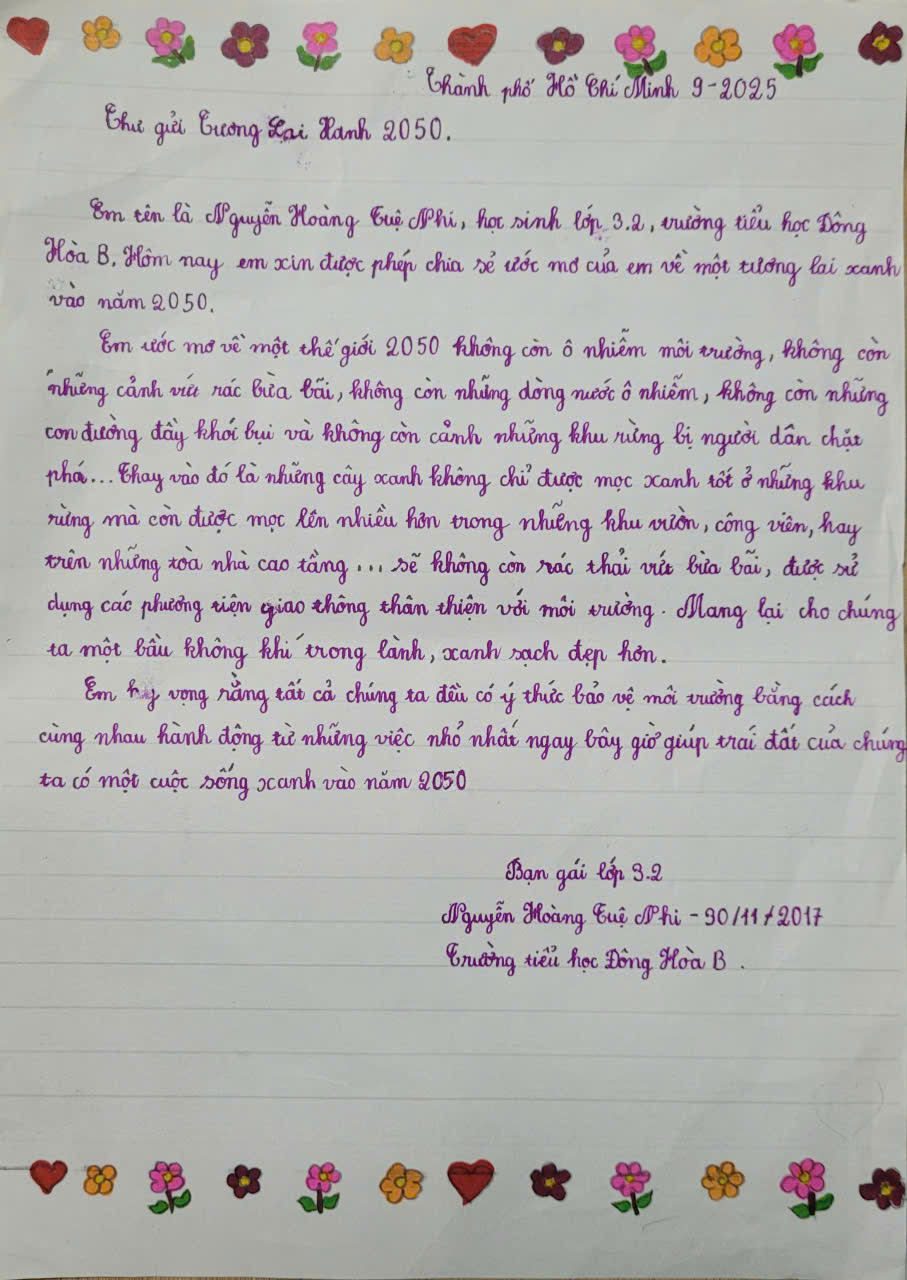 Thành phố Hồ Chí Minh 9-2025
Thư gửi Tương Lai Xanh 2050.
Em tên là Nguyễn Hoàng Tuệ Nhi, học sinh lớp 3.2, trường tiểu học Đông
Hòa B. Hôm nay em xin được phép chia sẻ ước mơ của em về một tương lai xanh
vào năm 2050.
Em ước mơ về một thế giới 2050 không còn ô nhiễm môi trường, không còn
những cảnh vứt rác bừa bãi, không còn những dòng nước ô nhiễm, không còn những
con đường đầy khói bụi và không còn cảnh những khu rừng bị người dân chặt
phá... Thay vào đó là những cây xanh không chỉ được mọc xanh tốt ở những khu
rừng mà còn được mọc lên nhiều hơn trong những khu vườn, công viên, hay
trên những tòa nhà cao tầng ... sẽ không còn rác thải vứt bừa bãi, được sử
dụng các phương tiện giao thông thân thiện với môi trường. Mang lại cho chúng
ta một bầu không khí trong lành, xanh sạch đẹp hơn.
Em hy vọng rằng tất cả chúng ta đều có ý thức bảo vệ môi trường bằng cách
cùng nhau hành động từ những việc nhỏ nhất ngay bây giờ giúp trái đất của chúng
ta có một cuộc sống xanh vào năm 2050
Bạn gái lớp 3.2
Nguyễn Hoàng Tuệ Nhi - 30/11/2017
Trường tiểu học Đông Hòa B.